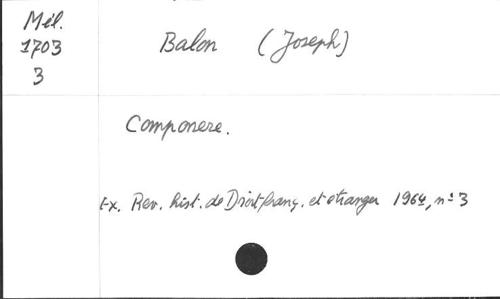 Mél.
1703
3
Balon (Joseph)
Componere.
Ex. Rev. hist. de Droit franç. et étranger 1964, n° 3